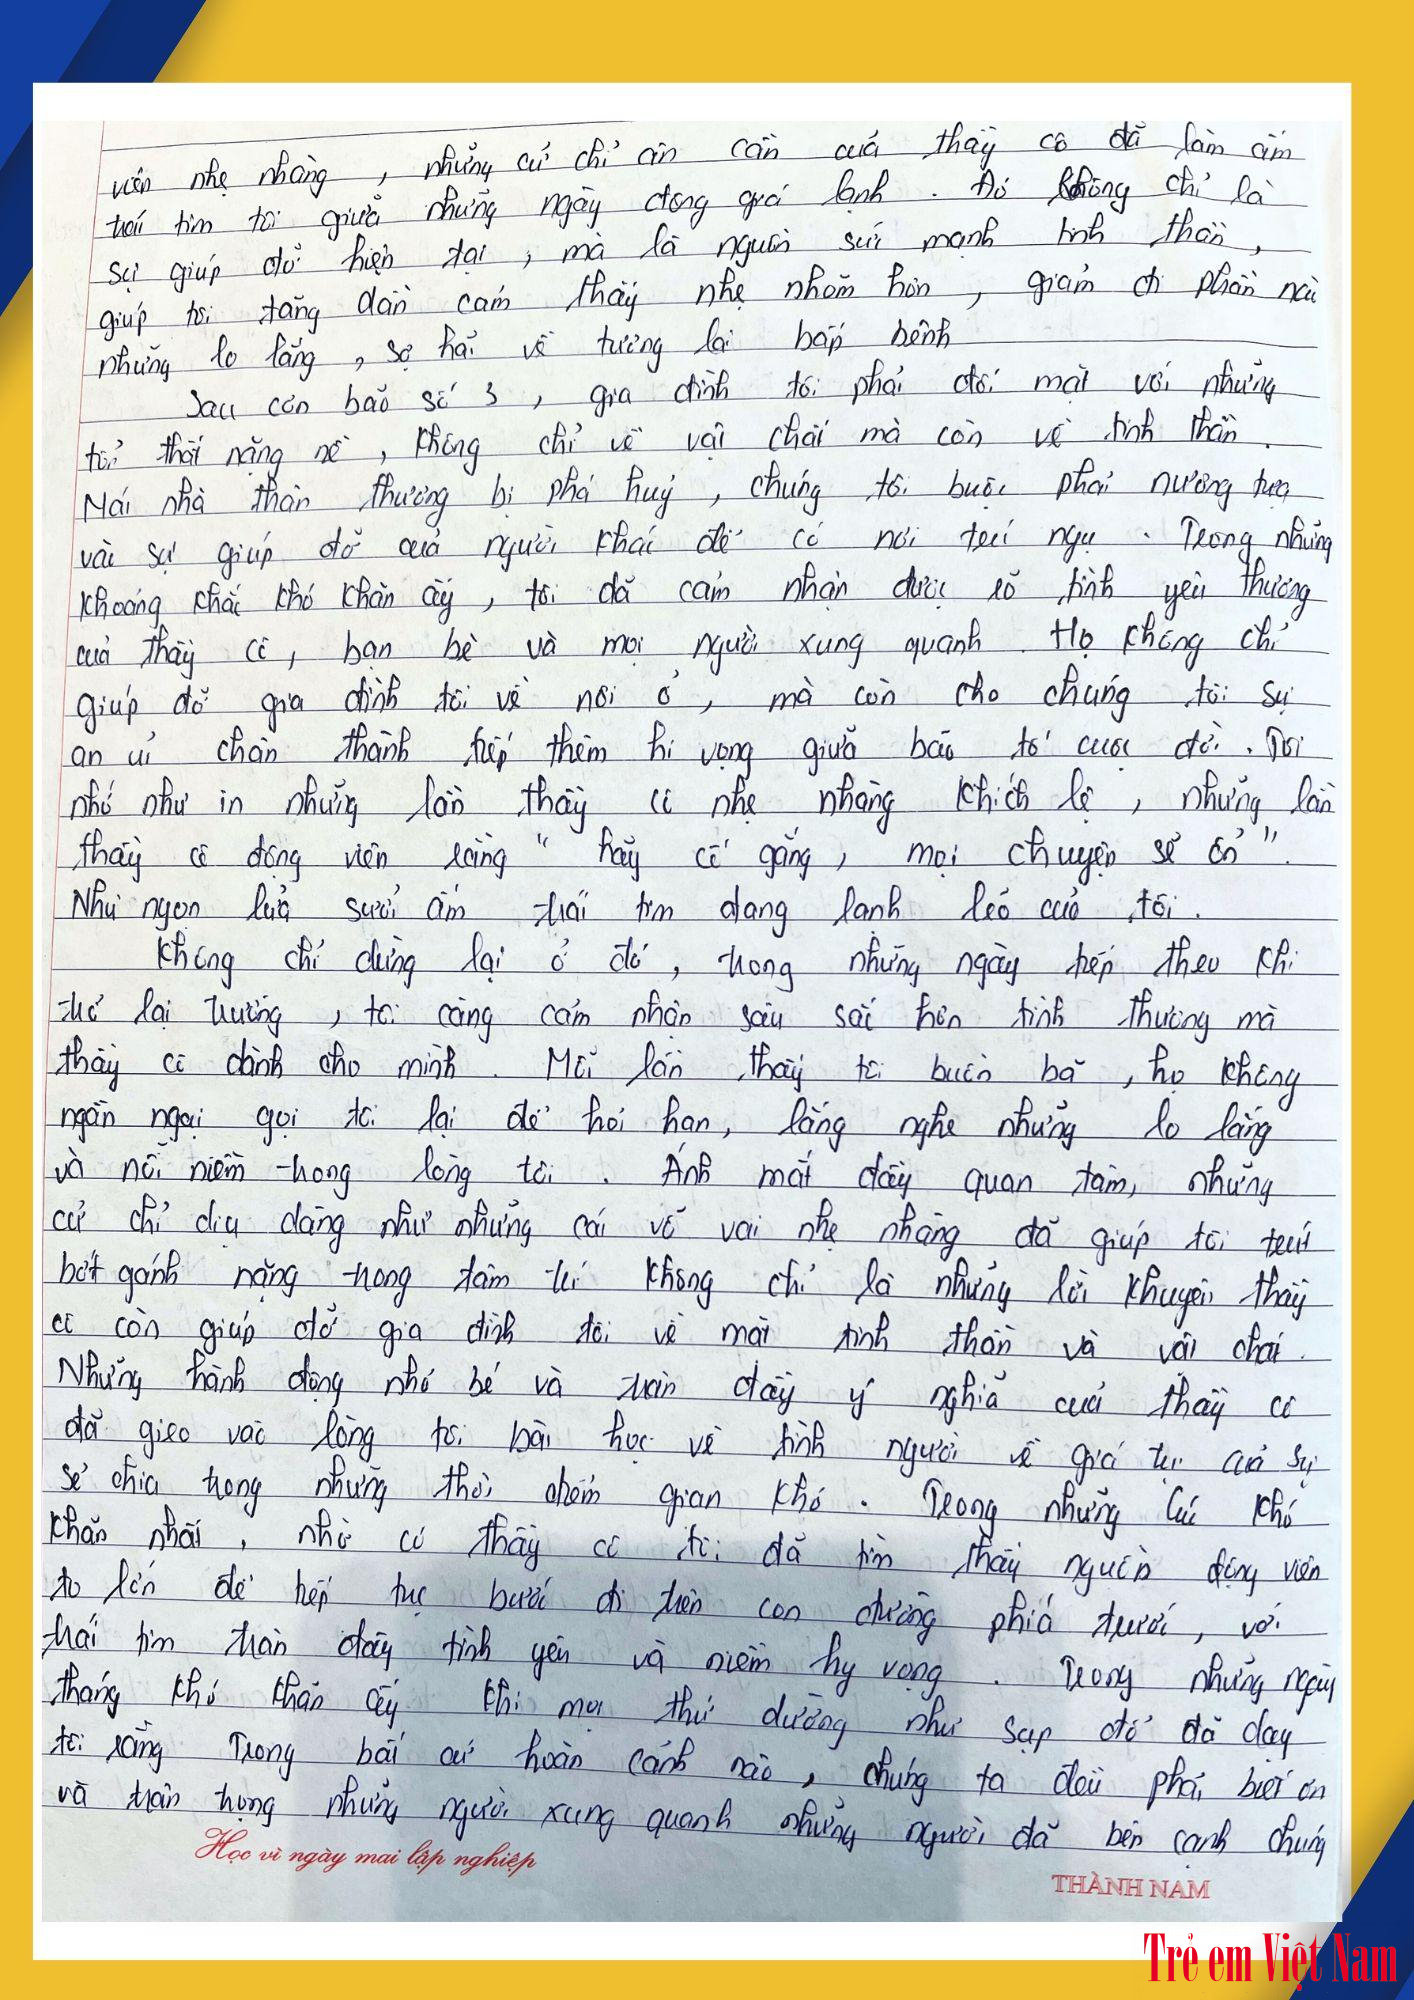 viên nhẹ nhàng, những cử chỉ ân cần của thầy cô đã làm ấm
trái tim tôi giữa những ngày đông giá lạnh. Đó không chỉ là
sự giúp đỡ hiện tại, mà là nguồn sức mạnh tinh thần,
giúp tôi tăng dần cảm thấy nhẹ nhõm hơn, giảm đi phần nào
những lo lắng, sợ hãi về tương lai bấp bênh
Sau cơn bão số 3, gia đình tôi phải đối mặt với những
tổn thất nặng nề, không chỉ về vật chất mà còn về tinh thần.
Mái nhà thân thương bị phá huỷ, chúng tôi buộc phải nương tựa
vào sự giúp đỡ của người khác để có nơi trú ngụ. Trong những
khoảng khắc khó khăn ấy, tôi đã cảm nhận được rõ tình yêu thương
của thầy cô, bạn bè và mọi người xung quanh. Họ không chỉ
giúp đỡ gia đình tôi về nơi ở, mà còn cho chúng tôi sự
an ủi chân thành tiếp thêm hi vọng giữa bão tố cuộc đời. Tôi
nhớ như in những lần thầy cô nhẹ nhàng khích lệ, những lần
thầy cô động viên rằng "hãy cố gắng, mọi chuyện sẽ ổn".
Như ngọn lửa sưởi ấm trái tim đang lạnh lẽo của tôi.
Không chỉ dừng lại ở đó, trong những ngày tiếp theo khi
trở lại trường, tôi càng cảm nhận sâu sắc hơn tình thương mà
thầy cô dành cho mình. Mỗi lần thấy tôi buồn bã, họ không
ngần ngại gọi tôi lại để hỏi han, lắng nghe những lo lắng
và nỗi niềm trong lòng tôi. Ánh mắt đầy quan tâm, những
cử chỉ dịu dàng như những cái vỗ vai nhẹ nhàng đã giúp tôi trút
bớt gánh nặng trong tâm trí không chỉ là những lời khuyên thầy
cô còn giúp đỡ gia đình tôi về mặt tinh thần và vật chất.
Những hành động nhỏ bé và tràn đầy ý nghĩa của thầy cô
đã gieo vào lòng tôi bài học về tình người về giá trị của sự
sẻ chia trong những thời điểm gian khó. Trong những lúc khó
khăn nhất, nhờ có thầy cô tôi đã tìm thấy nguồn động viên
to lớn để tiếp tục bước đi trên con đường phía trước, với
trái tim tràn đầy tình yêu và niềm hy vọng. Trong những ngày
tháng khó khăn ấy khi mọi thứ dường như sụp đổ đã dạy
tôi rằng Trong bất cứ hoàn cảnh nào, chúng ta đều phải biết ơn
và trân trọng những người xung quanh những người đã bên cạnh chúng
Học vì ngày mai lập nghiệp
THÀNH NAM
Trẻ em Việt Nam